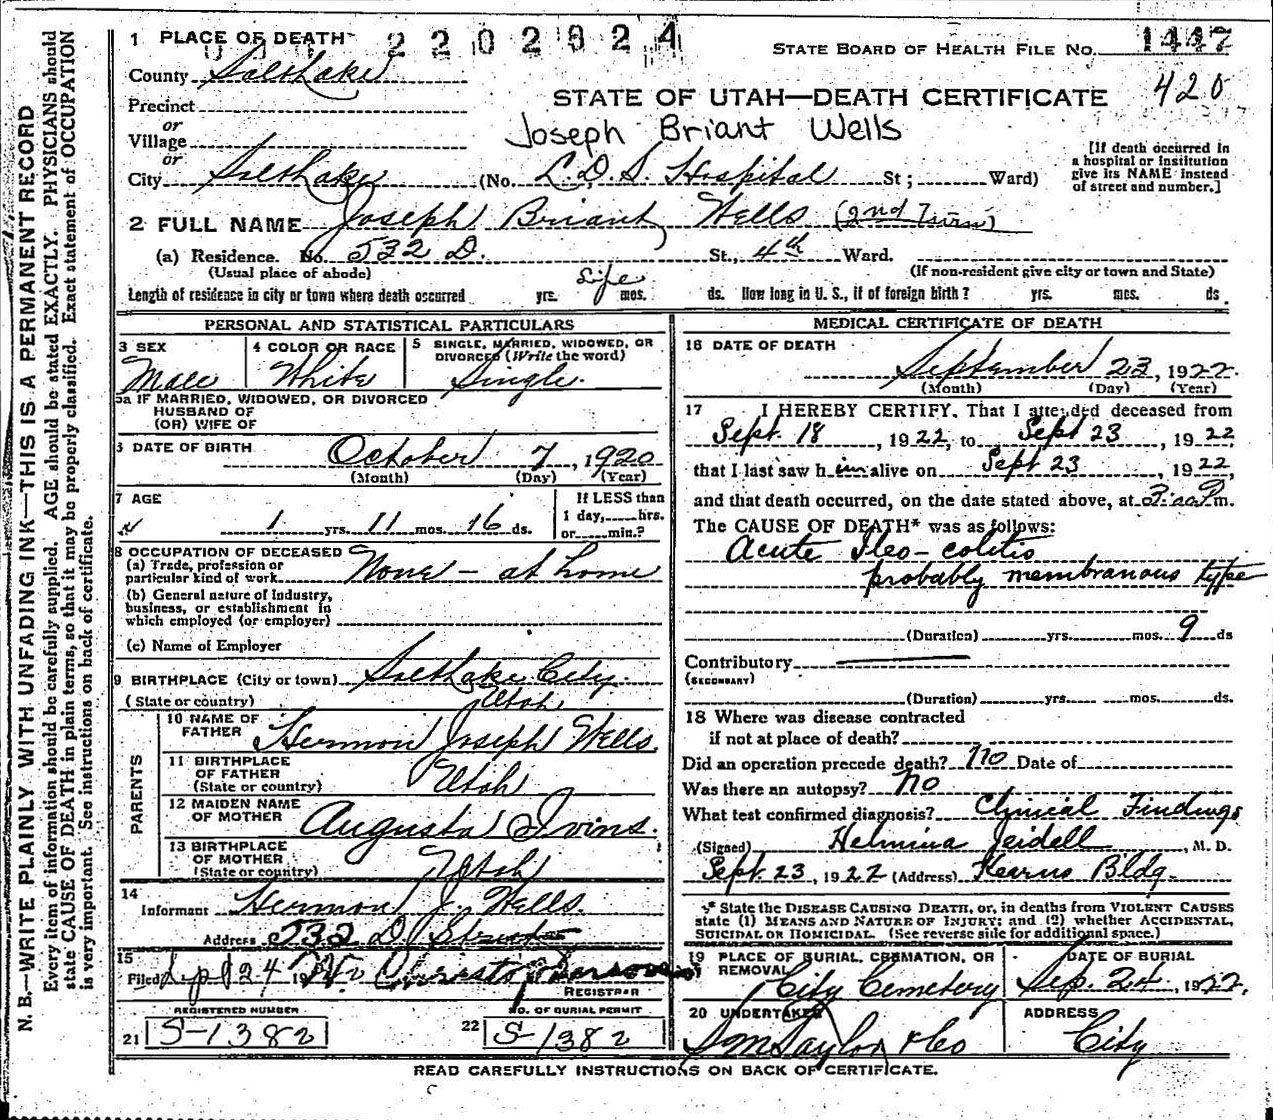 N. B.—WRITE PLAINLY WITH UNFADING INK—THIS IS A PERMANENT RECORD
Every item of information should be carefully supplied. AGE should be stated EXACTLY. PHYSICIANS should
state CAUSE OF DEATH in plain terms, so that it may be properly classified. Exact statement of OCCUPATION
is very important. See instructions on back of certificate.
1 PLACE OF DEATH 2202824 STATE BOARD OF HEALTH FILE NO. 1447
County Salt Lake
420
STATE OF UTAH—DEATH CERTIFICATE
Precinct
or
Village
Joseph Briant Wells
[If death occurred in
a hospital or institution
give its NAME instead
of street and number.]
or
City Salt Lake (No. L.D.S. Hospital St; Ward)
2 FULL NAME Joseph Briant Wells (2nd Twin)
(a) Residence. No. 532 D. St., 4th Ward.
(Usual place of abode) (If non-resident give city or town and State)
Length of residence in city or town where death occurred yrs. Life mos. ds. How long in U. S., if of foreign birth? yrs. mos. ds.
PERSONAL AND STATISTICAL PARTICULARS
3 SEX Male
4 COLOR OR RACE White
5 SINGLE, MARRIED, WIDOWED, OR
DIVORCED (Write the word)
Single.
5a IF MARRIED, WIDOWED, OR DIVORCED
HUSBAND OF
(OR) WIFE OF
6 DATE OF BIRTH October 7, 1920
(Month) (Day) (Year)
7 AGE 1 yrs. 11 mos. 16 ds.
If LESS than
1 day, hrs.
or min.?
8 OCCUPATION OF DECEASED
(a) Trade, profession or
particular kind of work None - at home
(b) General nature of Industry,
business, or establishment in
which employed (or employer)
(c) Name of Employer
9 BIRTHPLACE (City or town) Salt Lake City.
(State or country) Utah
PARENTS
10 NAME OF
FATHER Hermon Joseph Wells.
11 BIRTHPLACE
OF FATHER
(State or country) Utah
12 MAIDEN NAME
OF MOTHER Augusta Ivins.
13 BIRTHPLACE
OF MOTHER
(State or country) Utah
14
Informant Hermon J. Wells.
Address 532 D Street
15
Filed Sep 24 19
REGISTRAR
REGISTERED NUMBER
21 S-1382
NO. OF BURIAL PERMIT
22 S-1382
MEDICAL CERTIFICATE OF DEATH
16 DATE OF DEATH
September 23, 1922.
(Month) (Day) (Year)
17 I HEREBY CERTIFY, That I attended deceased from
Sept. 18, 1922, to Sept 23, 1922
that I last saw h im alive on Sept 23, 1922,
and that death occurred, on the date stated above, at 3:00 P m.
The CAUSE OF DEATH* was as follows:
Acute Ileo-colitis
probably membranous type
(Duration) yrs. mos. 9 ds
Contributory
(SECONDARY)
(Duration) yrs. mos. ds.
18 Where was disease contracted
if not at place of death?
Did an operation precede death? no Date of
Was there an autopsy? No
What test confirmed diagnosis? Clinical Findings
(Signed) Helmina Jeidell, M. D.
Sept. 23, 1922 (Address) Kearns Bldg.
* State the DISEASE CAUSING DEATH, or, in deaths from VIOLENT CAUSES
state (1) MEANS AND NATURE OF INJURY; and (2) whether ACCIDENTAL,
SUICIDAL OR HOMICIDAL. (See reverse side for additional space.)
19 PLACE OF BURIAL, CREMATION, OR
REMOVAL
City Cemetery
DATE OF BURIAL
Sep. 24, 1922.
20 UNDERTAKER
S M Taylor & Co
ADDRESS
City
READ CAREFULLY INSTRUCTIONS ON BACK OF CERTIFICATE.